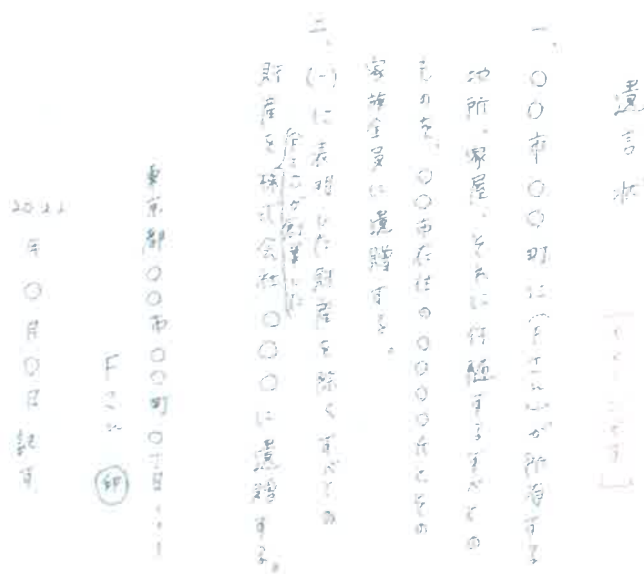 遺言状
一、〇〇市〇〇町に(F子 )が所有する
地所、家屋、それに付随するすべての
ものを、〇〇市在住の〇〇〇〇氏とその
家族全員に遺贈する。
二、(一)に表明した財産を除くすべての
財産を株式会社〇〇〇に遺贈する。
が創業した
東京都〇〇市〇〇町〇丁目
印
2022年〇月〇日記す